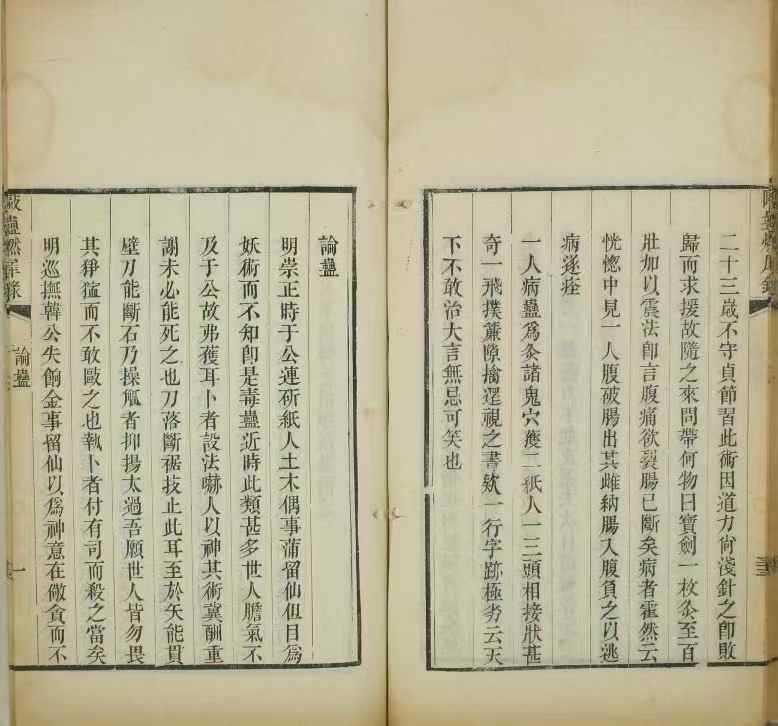 二十三歲不守貞節習此術因道力尙淺針之卽敗
歸而求援故隨之來問帶何物曰寶劍一枚灸至百
壯加以震法卽言腹痛欲裂腸已斷矣病者霍然云
恍惚中見一人腹破腸出其雌納腸入腹負之以逃
病遂痊
一人病蠱爲灸諸鬼穴獲二紙人一三頭相接狀甚
奇一飛撲簾隙擒還視之書欵一行字跡極劣云天
下不敢治大言無忌可笑也
論蠱
明崇正時于公連斫紙人土木偶事蒲留仙但目爲
妖術而不知卽是毒蠱近時此類甚多世人膽氣不
及于公故弗獲耳卜者設法嚇人以神其術冀酬重
謝未必能死之也刀落斷裾技止此耳至於矢能貫
壁刀能斷石乃操觚者抑揚太過吾願世人皆勿畏
其猙獰而不敢毆之也執卜者付有司而殺之當矣
明巡撫韓公失餉金事留仙以爲神意在儆貪而不
論蠱
一